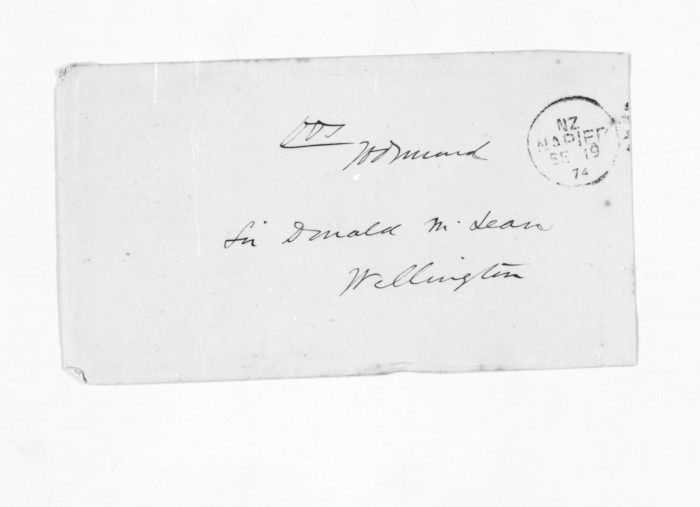 NZ
NAPIER
SE 19
74
Sir Donald McLean
Wellington